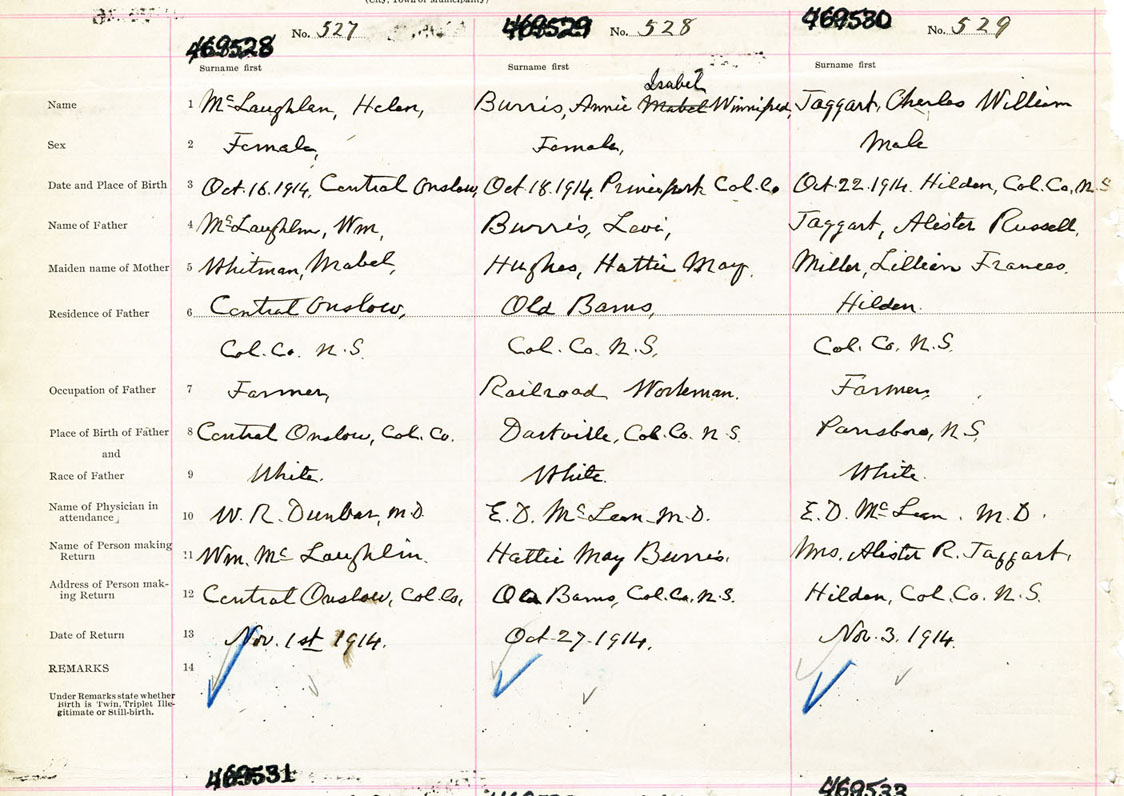 (City, Town or Municipality)
469528 No. 527 469529 No. 528 469530 No. 529
Surname first Surname first Surname first
Isabel
Name 1 McLaughlan, Helen, Burris, Annie Mabel Winnifred, Taggart, Charles William
Sex 2 Female, Female, Male
Date and Place of Birth 3 Oct.16.1914, Central Onslow, Oct.18.1914, Princeport Col.Co Oct.22.1914. Hilden, Col.Co, N.S
Name of Father 4 McLaughlin, Wm, Burris, Levi, Taggart, Alister Russell,
Maiden name of Mother 5 Whitman, Mabel, Hughes, Hattie May. Miller, Lillian Frances.
Residence of Father 6 Central Onslow, Old Barns, Hilden.
Col. Co. N.S. Col. Co. N.S. Col. Co, N.S.
Occupation of Father 7 Farmer, Railroad Workman. Farmer,
Place of Birth of Father 8 Central Onslow, Col. Co. Dartville, Col.Co. N.S. Parrsboro, N.S.
and
Race of Father 9 White. White. White.
Name of Physician in
attendance 10 W. R. Dunbar, M.D. E.D. McLean M.D. E.D. McLean. M.D.
Name of Person making
Return 11 Wm. McLaughlin. Hattie May Burris. Mrs. Alister R. Taggart.
Address of Person mak-
ing Return 12 Central Onslow, Col.Co, Old Barns, Col.Co. N.S. Hilden, Col.Co. N.S.
Date of Return 13 Nov. 1st 1914. Oct-27-1914. Nov. 3. 1914.
REMARKS 14
Under Remarks state whether
Birth is Twin, Triplet Ille-
gitimate or Still-birth.
469531 469533